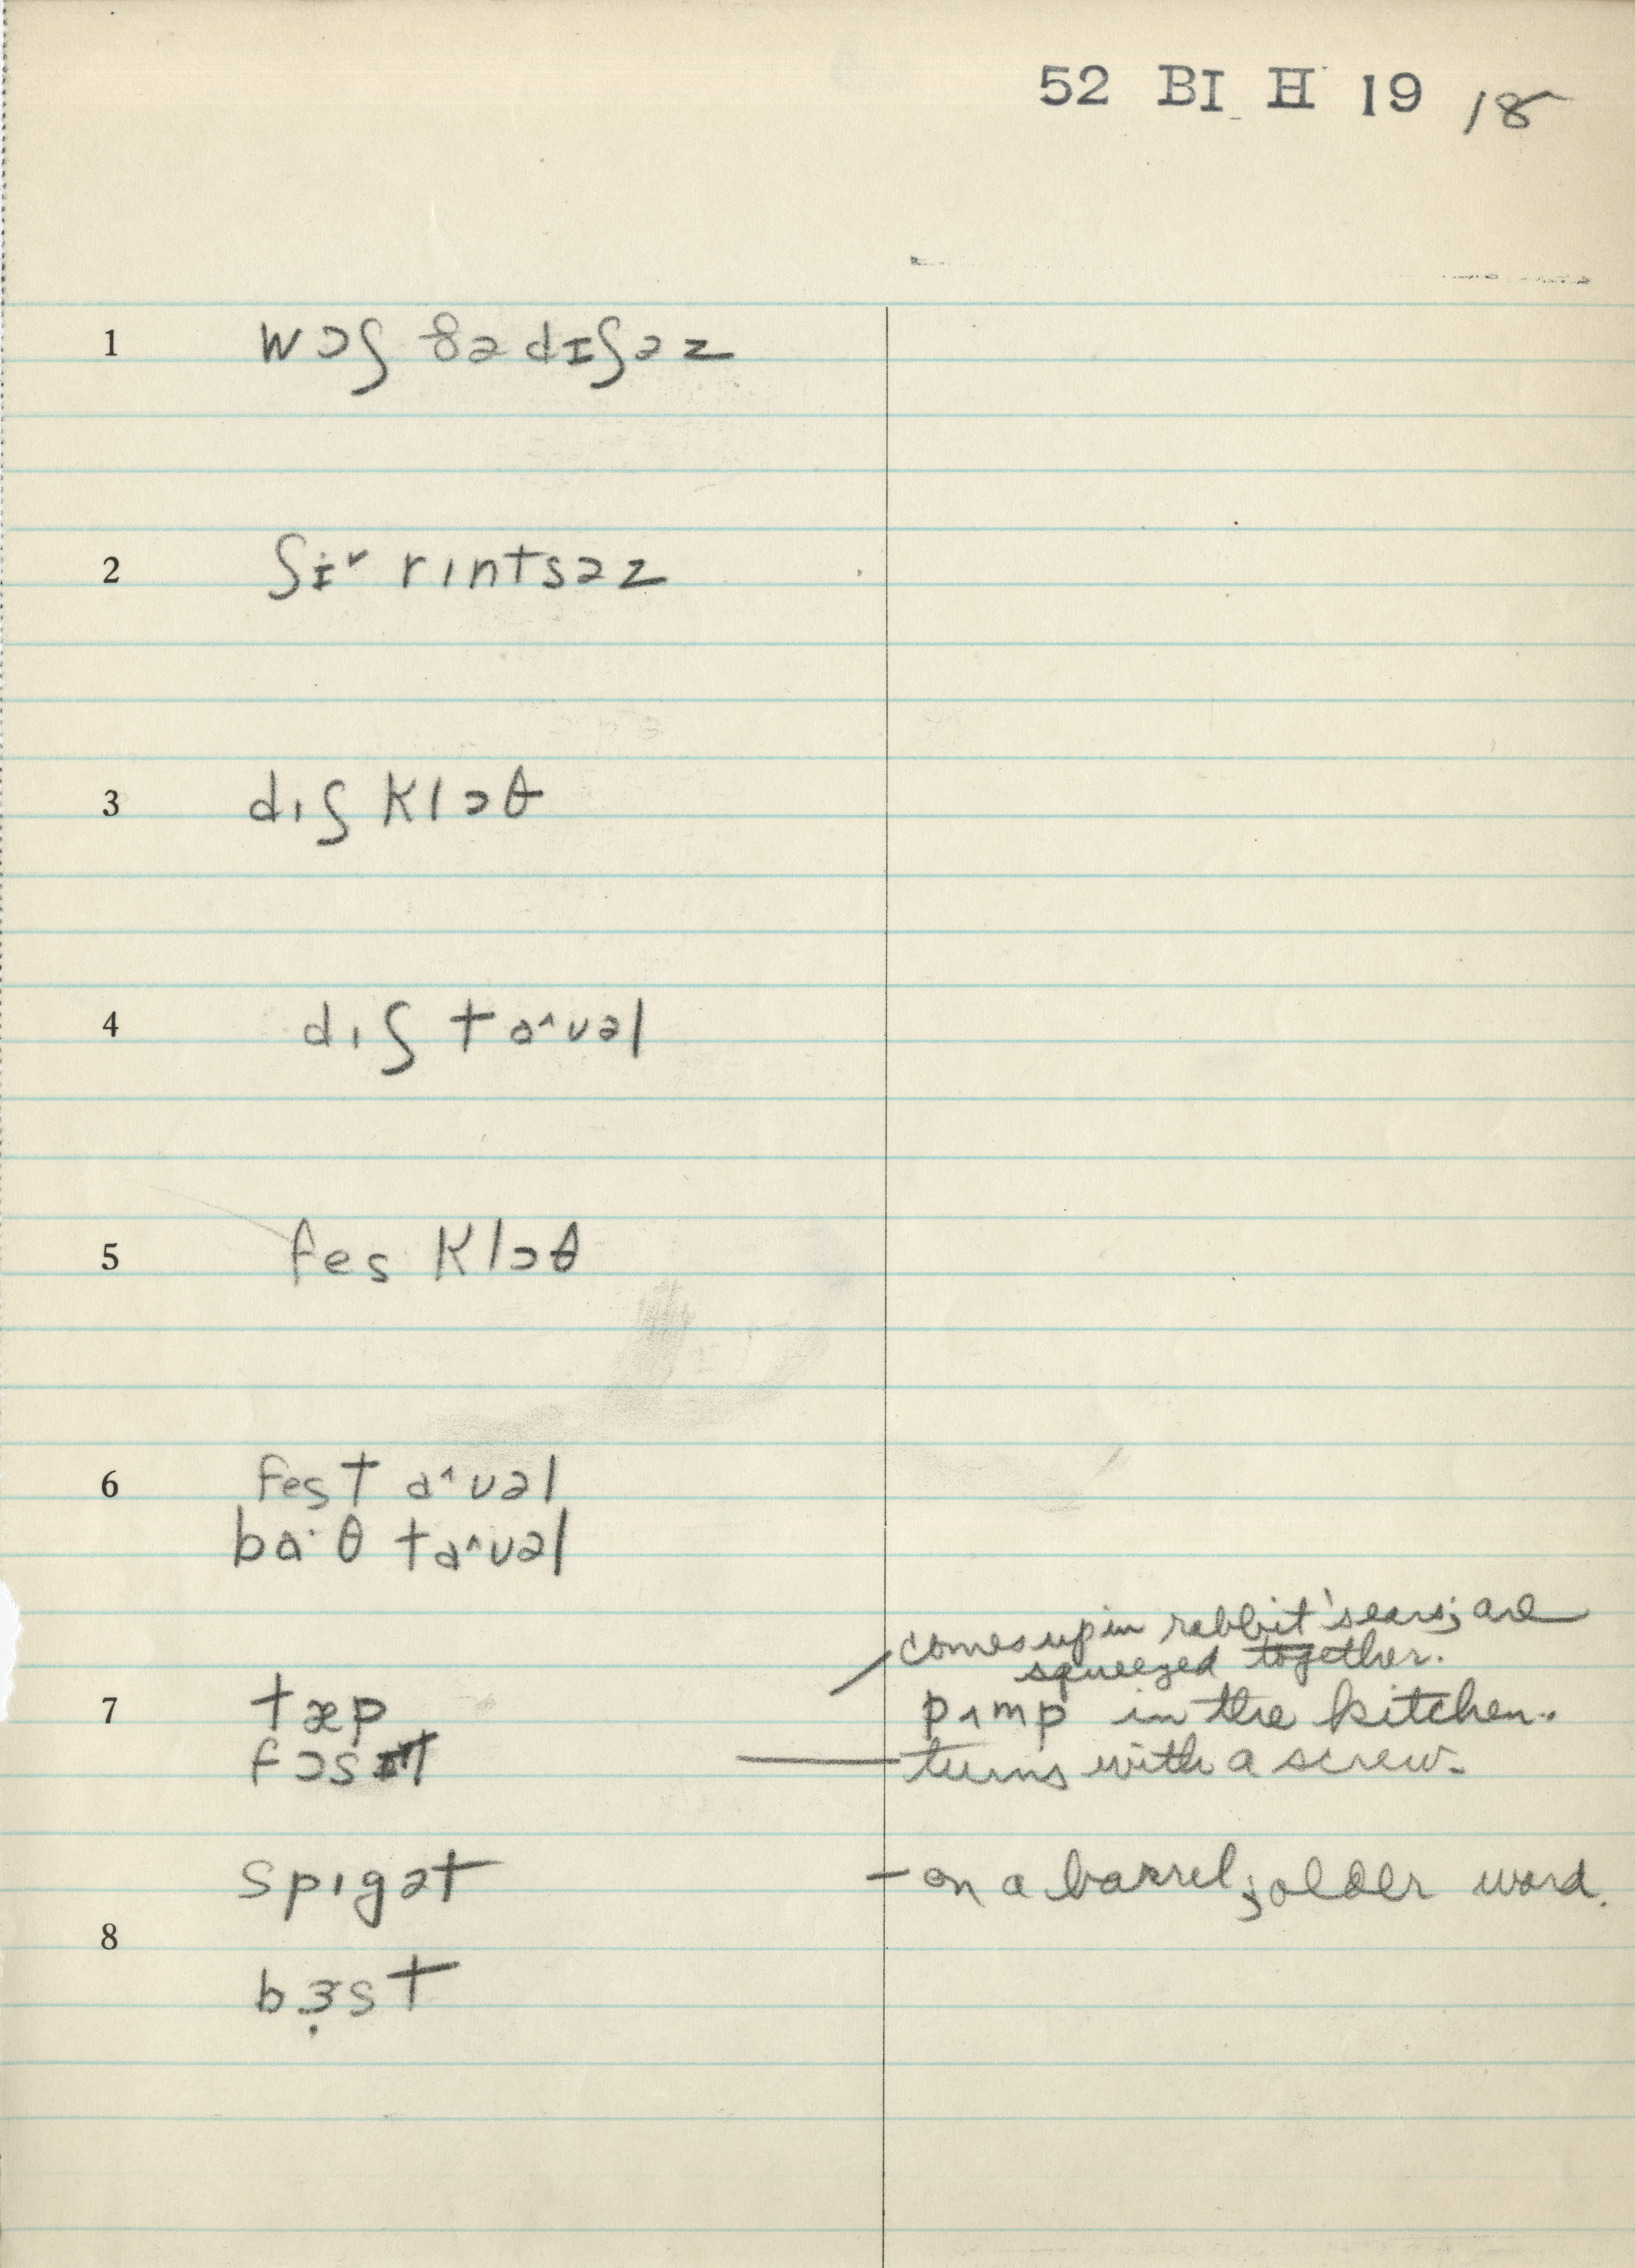 52 BI H 19 18
1 wɔʃ ðə dɪʃəz
2 ʃɪ˞ rɪntsəz
3 dɪʃ klɔθ
4 dɪʃ ta^uəl
5 fes klɔθ
6 fes ta^uəl
ba·θ ta^uəl
comes up in rabbit's ears; are
squeezed together.
7 tæp
pʌmp in the kitchen.
fɔsɪt
turns with a screw.
spɪgət – on a barrel; older word.
8
bɜ̣st